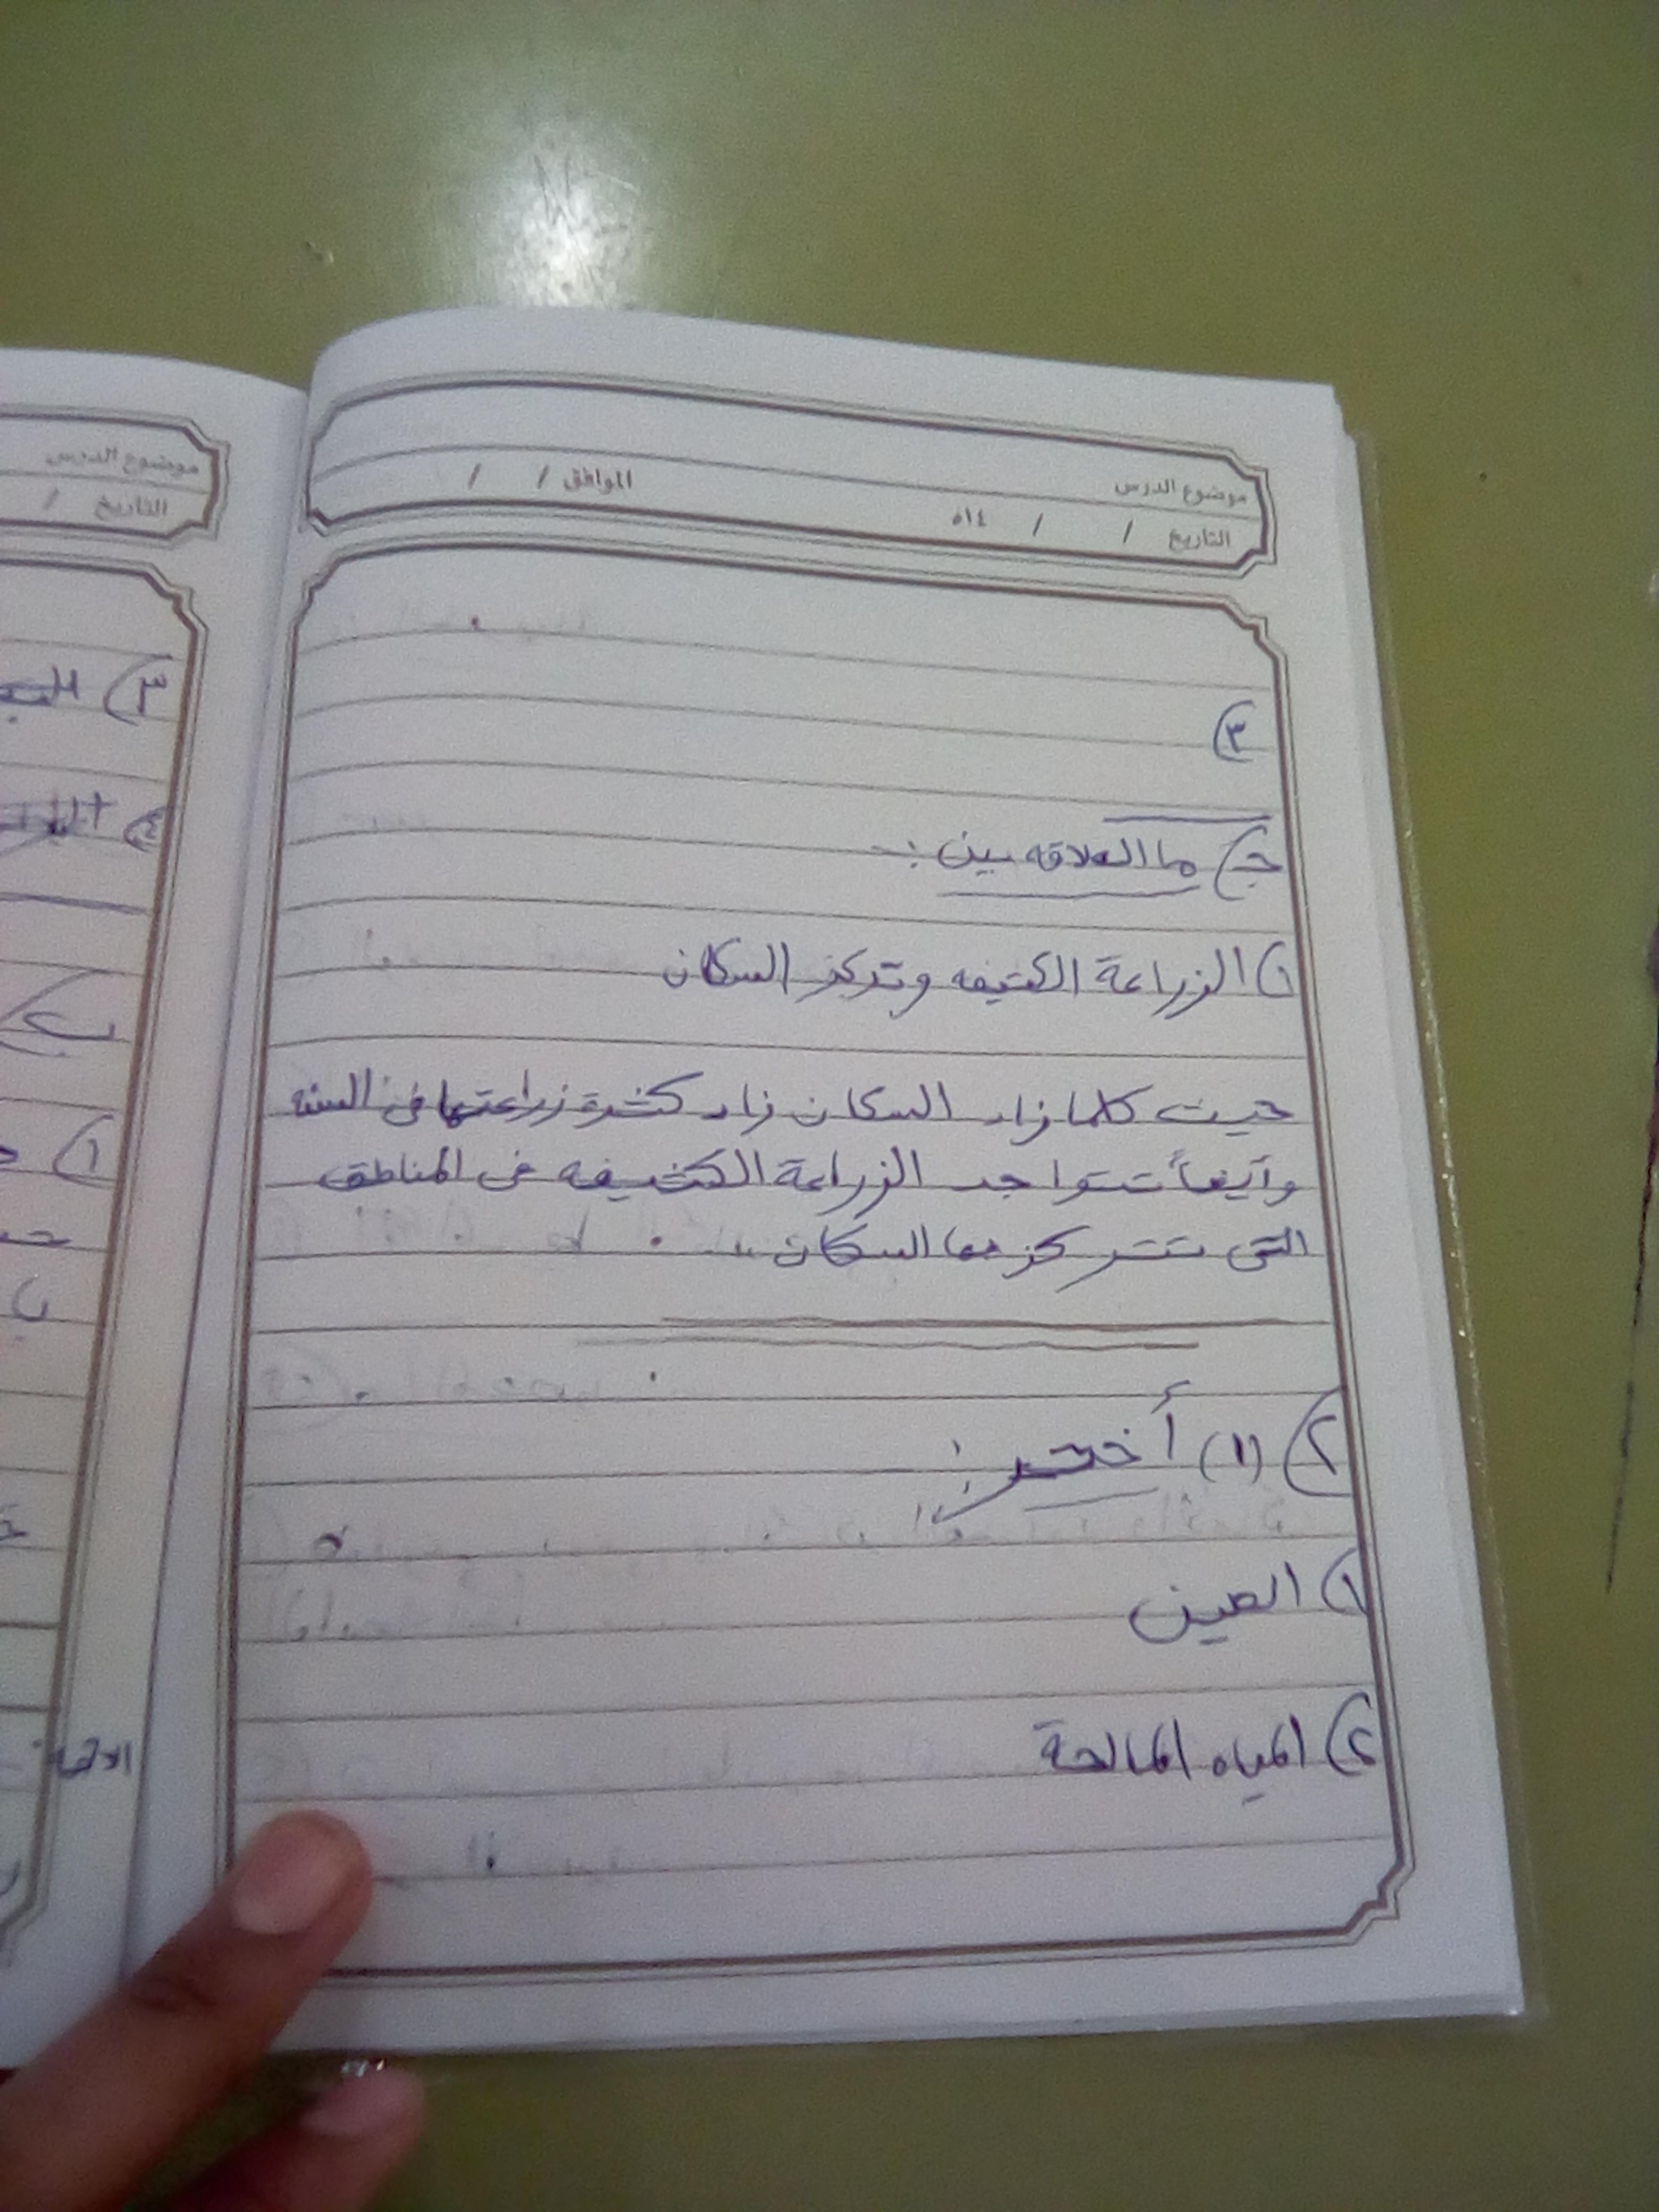 موضوع الدرس
التاريخ / / ١٤هـ الموافق / /
٣)
ج) ما العلاقه بين :-
١) الزراعة الكثيفه وتركز السكان
حيث كلما زاد السكان زاد كثرة زراعتها في السنه
وأيضاً تتواجد الزراعة الكثيفه في المناطق
التي تتركز بها السكان
٢) (١) أختر :
١) الصين
٢) المياه المالحة
موضوع الدرس
التاريخ /
٣)
٤)
ب)
١)